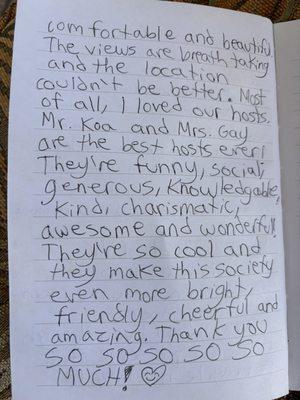 comfortable and beautiful
The views are breathtaking
and the location
couldn't be better. Most
of all, I loved our hosts.
Mr. Koa and Mrs. Gay
are the best hosts ever!
They're funny, social,
generous, knowledgable,
kind, charismatic,
awesome and wonderful!
They're so cool and
they make this society
even more bright,
friendly, cheerful and
amazing. Thank you
SO SO SO SO SO
MUCH!